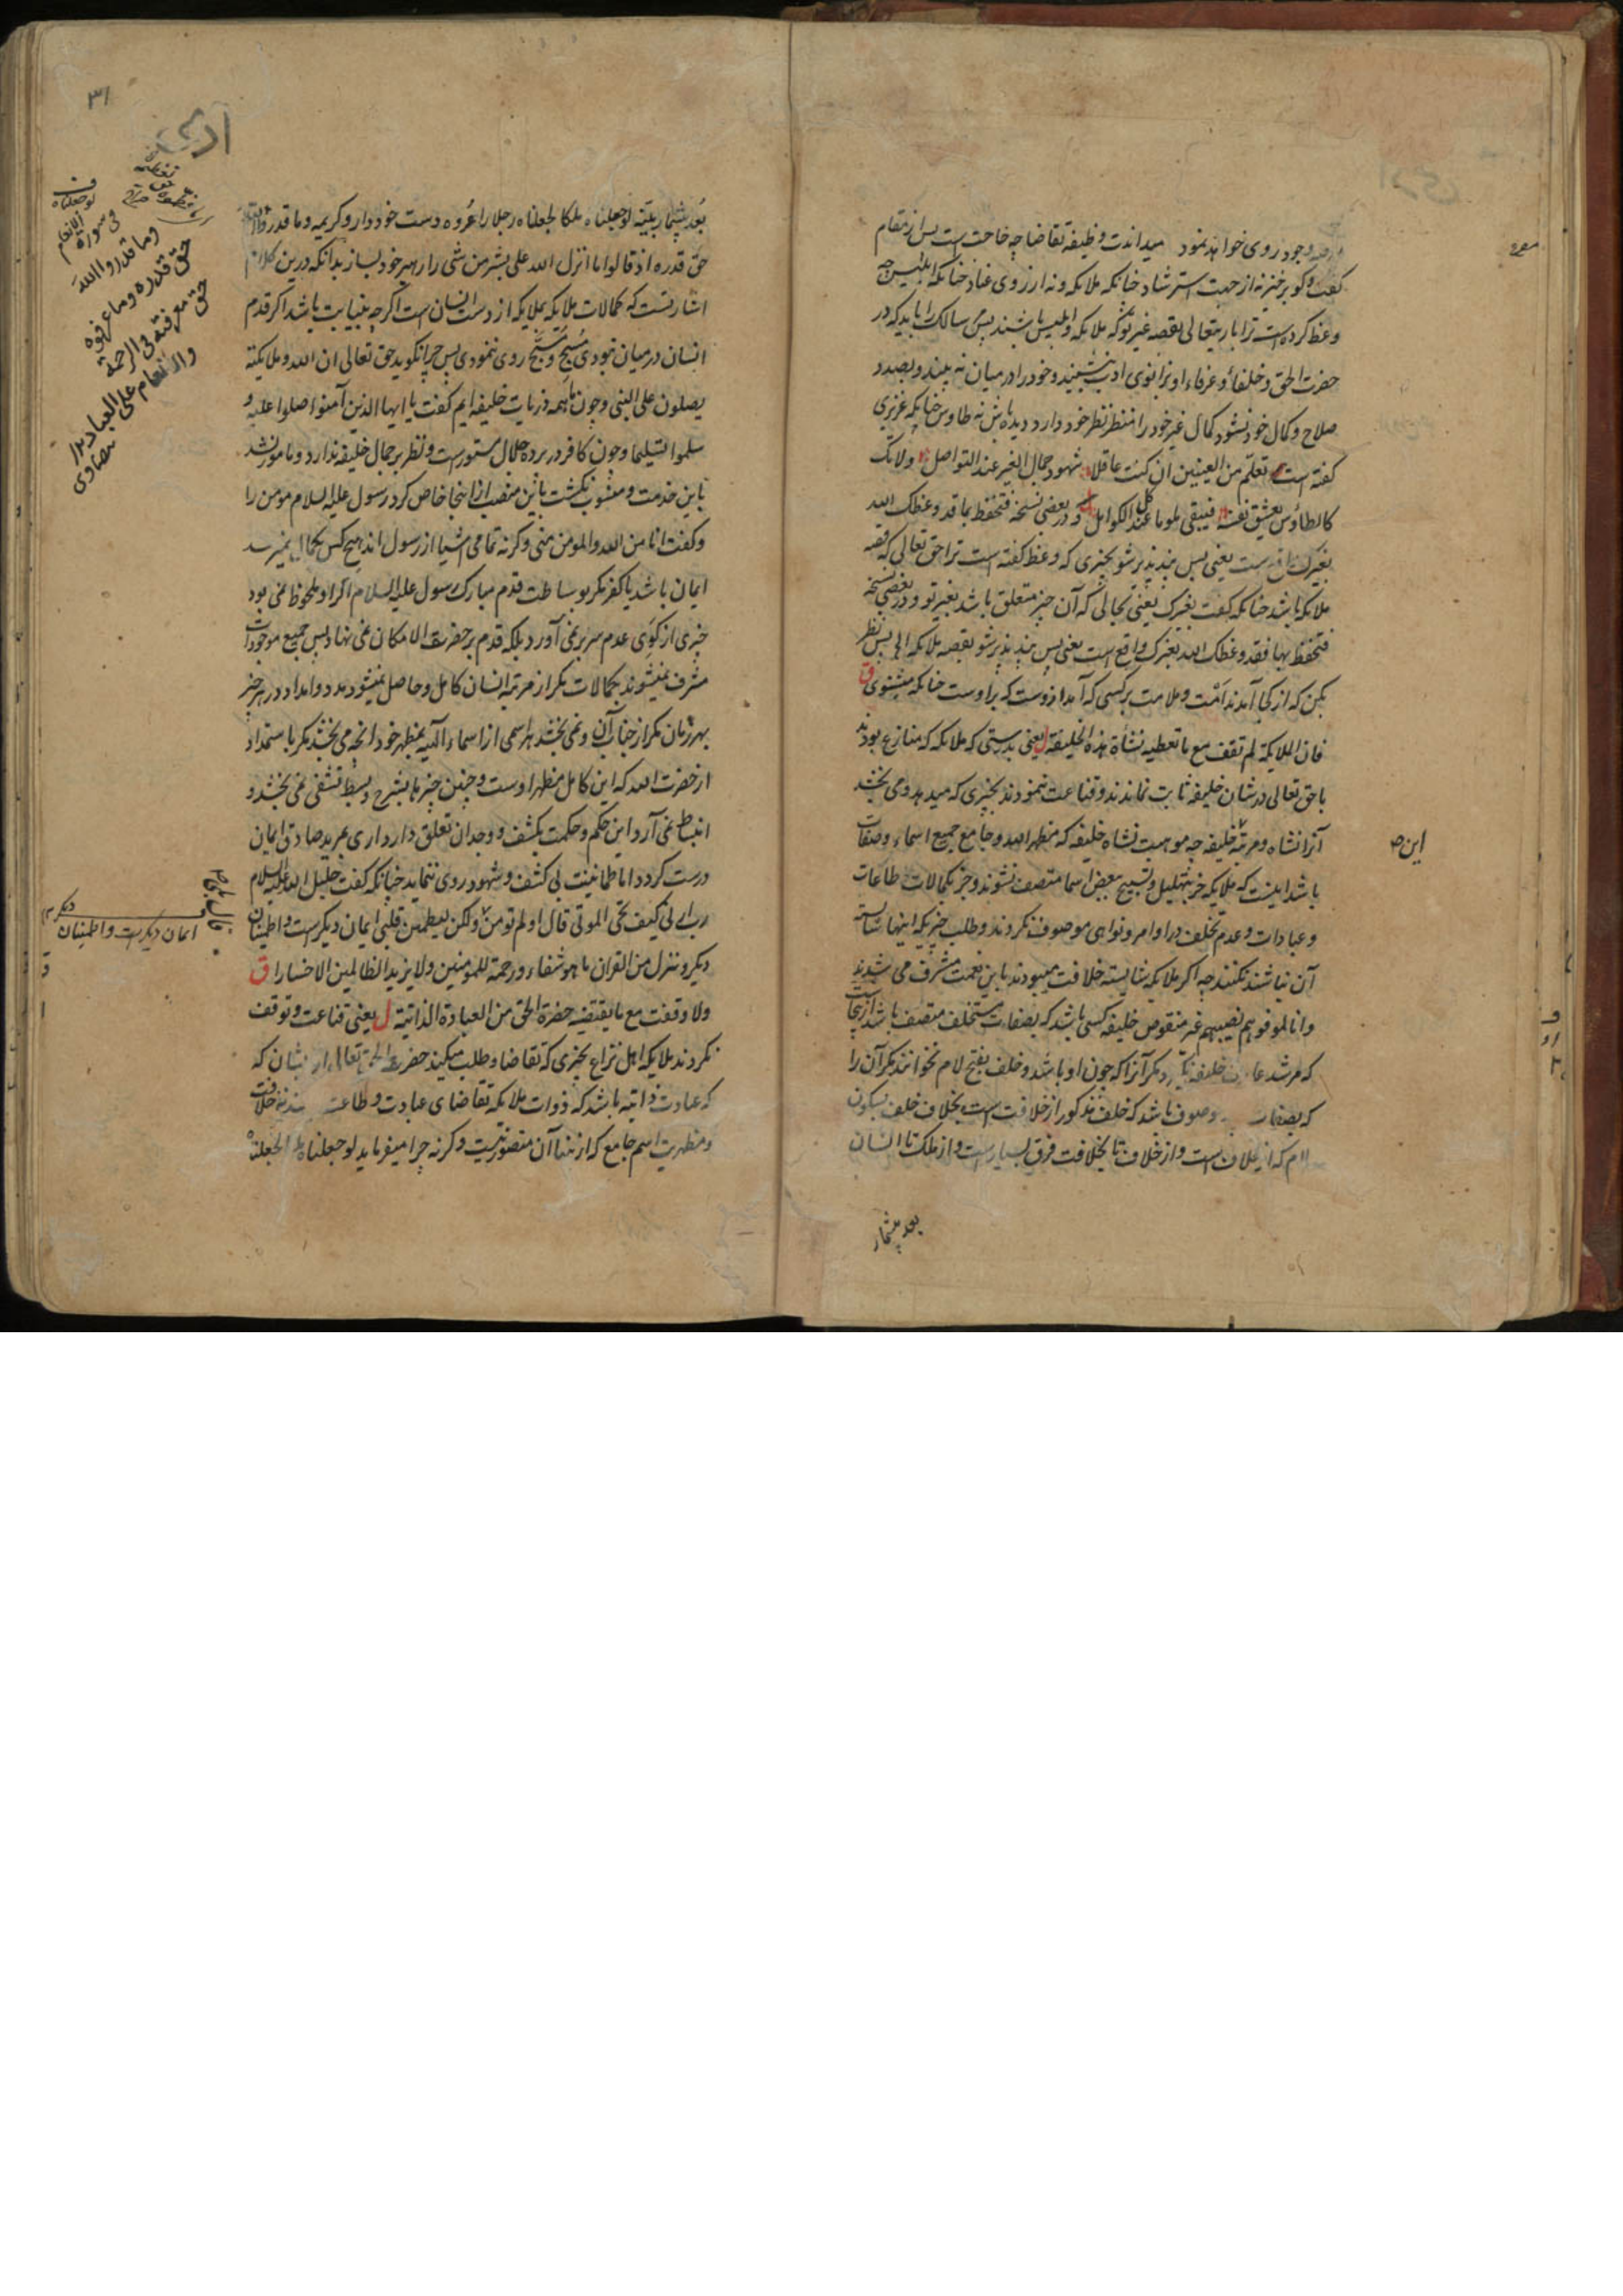 وجود روی خواهد نمود میداندت وظیفه تقاضا چه حاجت است پس از مقام
کفت وکو برخیز نه از جهت استرشاد چنانکه ملائکه ونه از روی عناد چنانکه ابلیس چه
وعظ کرده است ترا باریتعالی بقصه غیر تو که ملائکه وابلیس باشند پس سالک را باید که در
حضرت الحق وخلفاء وعرفاء او بزانوی ادب نشیند وخود را در میان نه بیند وبصدد
صلاح وکمال خود نشود کمال غیر خود را منتظر نظر خود دارد دیده باش نه طاوس چنانکه عزیزی
کفته است تعلم من العینین ان کنت عاقلا شهود جمال الغیر عند التواصل ولا تک
کالطاؤس یعشق نفسه فیبقی ملوما عند کل الکوامل و در بعضی نسخه فتحفظ بما قد وعظک الله
بغیرک واقع است یعنی پس پند پذیر شو بچیزی که وعظ کفته است ترا حق تعالی که قصه
ملائکه باشد چنانکه کفت بغیرک یعنی بحالی که آن چیز متعلق باشد بغیر تو و در بعضی نسخه
فتحفظ بها فقد وعظک الله بغیرک واقع است یعنی پس پند پذیر شو بقصه ملائکه الهی پس نظر
بکن که از کجا آمدند آفت وملامت بر کسی که آمد از وست که بر اوست چنانکه مثنوی ق
فان الملایکة لم تقف مع ما تعطیه نشأة هذه الخلیفة ل یعنی بدرستی که ملائکه که منازع بودند
با حق تعالی در شان خلیفه ثابت نماندند وقناعت ننمودند بچیزی که میدهد ومی بخشد
آنرا نشاه ومرتبه خلیفه چه موهبت نشاه خلیفه که مظهر الله وجامع جمیع اسماء وصفات
باشد اینست که ملایکه جز بتهلیل وتسبیح بعض اسما متصف نشوند وجز بکمالات طاعات
وعبادات وعدم تخلف در اوامر ونواهی موصوف نکردند وطلب چیزیکه اینها شایسته
آن نباشند نکنند چه اکر ملایکه شایسته خلافت میبودند باین نعمت مشرف می شدند
وانا لموفوهم نصیبهم غیر منقوص خلیفه کسی باشد که بصفات مستخلف متصف باشد از اینجاست
که مرشد خلیفه نکیرد مکر آنرا که چون او باشد وخلف بفتح لام نخوانند مکر آن را
که بصفات موصوف باشد که خلف مذکور از خلافت است بخلاف خلف بسکون
لام که از خلاف است واز خلاف تا بخلافت فرق بسیار است واز ملک تا انسان
بعد بیشمار
این ص
۳۱
بعد بیشمار بیّنه لو جعلناه ملکا لجعلناه رجلا را عروه دست خود دار وکریمه وما قدروا الله
حق قدره اذ قالوا ما انزل الله علی بشر من شی را رهبر خود بساز بدانکه درین کلام
اشارتست که کمالات ملایکه بملایکه از دست انسان است اکرچه بنیابت باشد اکر قدم
انسان در میان نبودی مسبّح وسبّح روی ننمودی پس چرا نکوید حق تعالی ان الله وملایکته
یصلون علی النبی وچون ما همه ذریات خلیفه ایم کفت یا ایها الذین آمنوا صلوا علیه و
سلموا تسلیما وچون کافر در پرده جلال مستورست ونظر بر جمال خلیفه ندارد ومامور نشد
باین خدمت ومنسوب نکشت باین منصب از اینجا خاص کرد رسول علیه السلام مومن را
وکفت انا من الله والمومن منی وکرنه تمامی اشیا از رسول اند هیچ کس بکمال نمیرسد
ایمان باشد یا کفر مکر بوساطت قدم مبارک رسول علیه السلام اکر او ملحوظ نمی بود
چیزی از کوی عدم سر بر نمی آورد بلکه قدم بر حضرت الامکان نمی نهاد پس جمیع موجودات
مشرف نمیشوند بکمالات مکر از مرتبه انسان کامل وحاصل نمیشود مدد وامداد در هر چیز
بهر زمان مکر از جناب آن ونمی بخشد هر اسمی از اسماء الهیه بمظهر خود آنچه می بخشد مکر باستمداد
از حضرت الله که این کامل مظهر اوست وچنین چیزها بشرح وبسط تشفی نمی بخشد و
انبساط نمی آرد این حکم وحکمت بکشف ووجدان تعلق دارد اری بمرید صادق ایمان
درست کردد اما طمانینت بی کشف وشهود روی ننماید چنانکه کفت خلیل الله علیه السلام
رب ارنی کیف تحی الموتی قال اولم تومن ولکن لیطمئن قلبی ایمان دیکرست واطمینان
دیکر وننزل من القران ما هو شفاء ورحمة للمؤمنین ولا یزید الظالمین الا خسارا ق
ولا وقفت مع ما یقتضیه حضرة الحق من العبادة الذاتیة ل یعنی قناعت وتوقف
نکردند ملایکه اهل نزاع بچیزی که تقاضا وطلب میکند حضرت الحق تعالی از ایشان که
که عبادت ذاتیه باشد که ذوات ملائکه تقاضای عبادت وطاعت خلافت
ومظهریت اسم جامع که از نشا آن متصور نیست وکرنه چرا میفرماید لو جعلناه ملکا لجعلناه
لو جعلناه
فی سورة الانعام
وما قدروا الله
حق قدره وما عرفوه
حق معرفته فی الرحمة
والانعام علی العباد
بیضاوی
قال بلی
ایمان دیکرست واطمینان دیکر